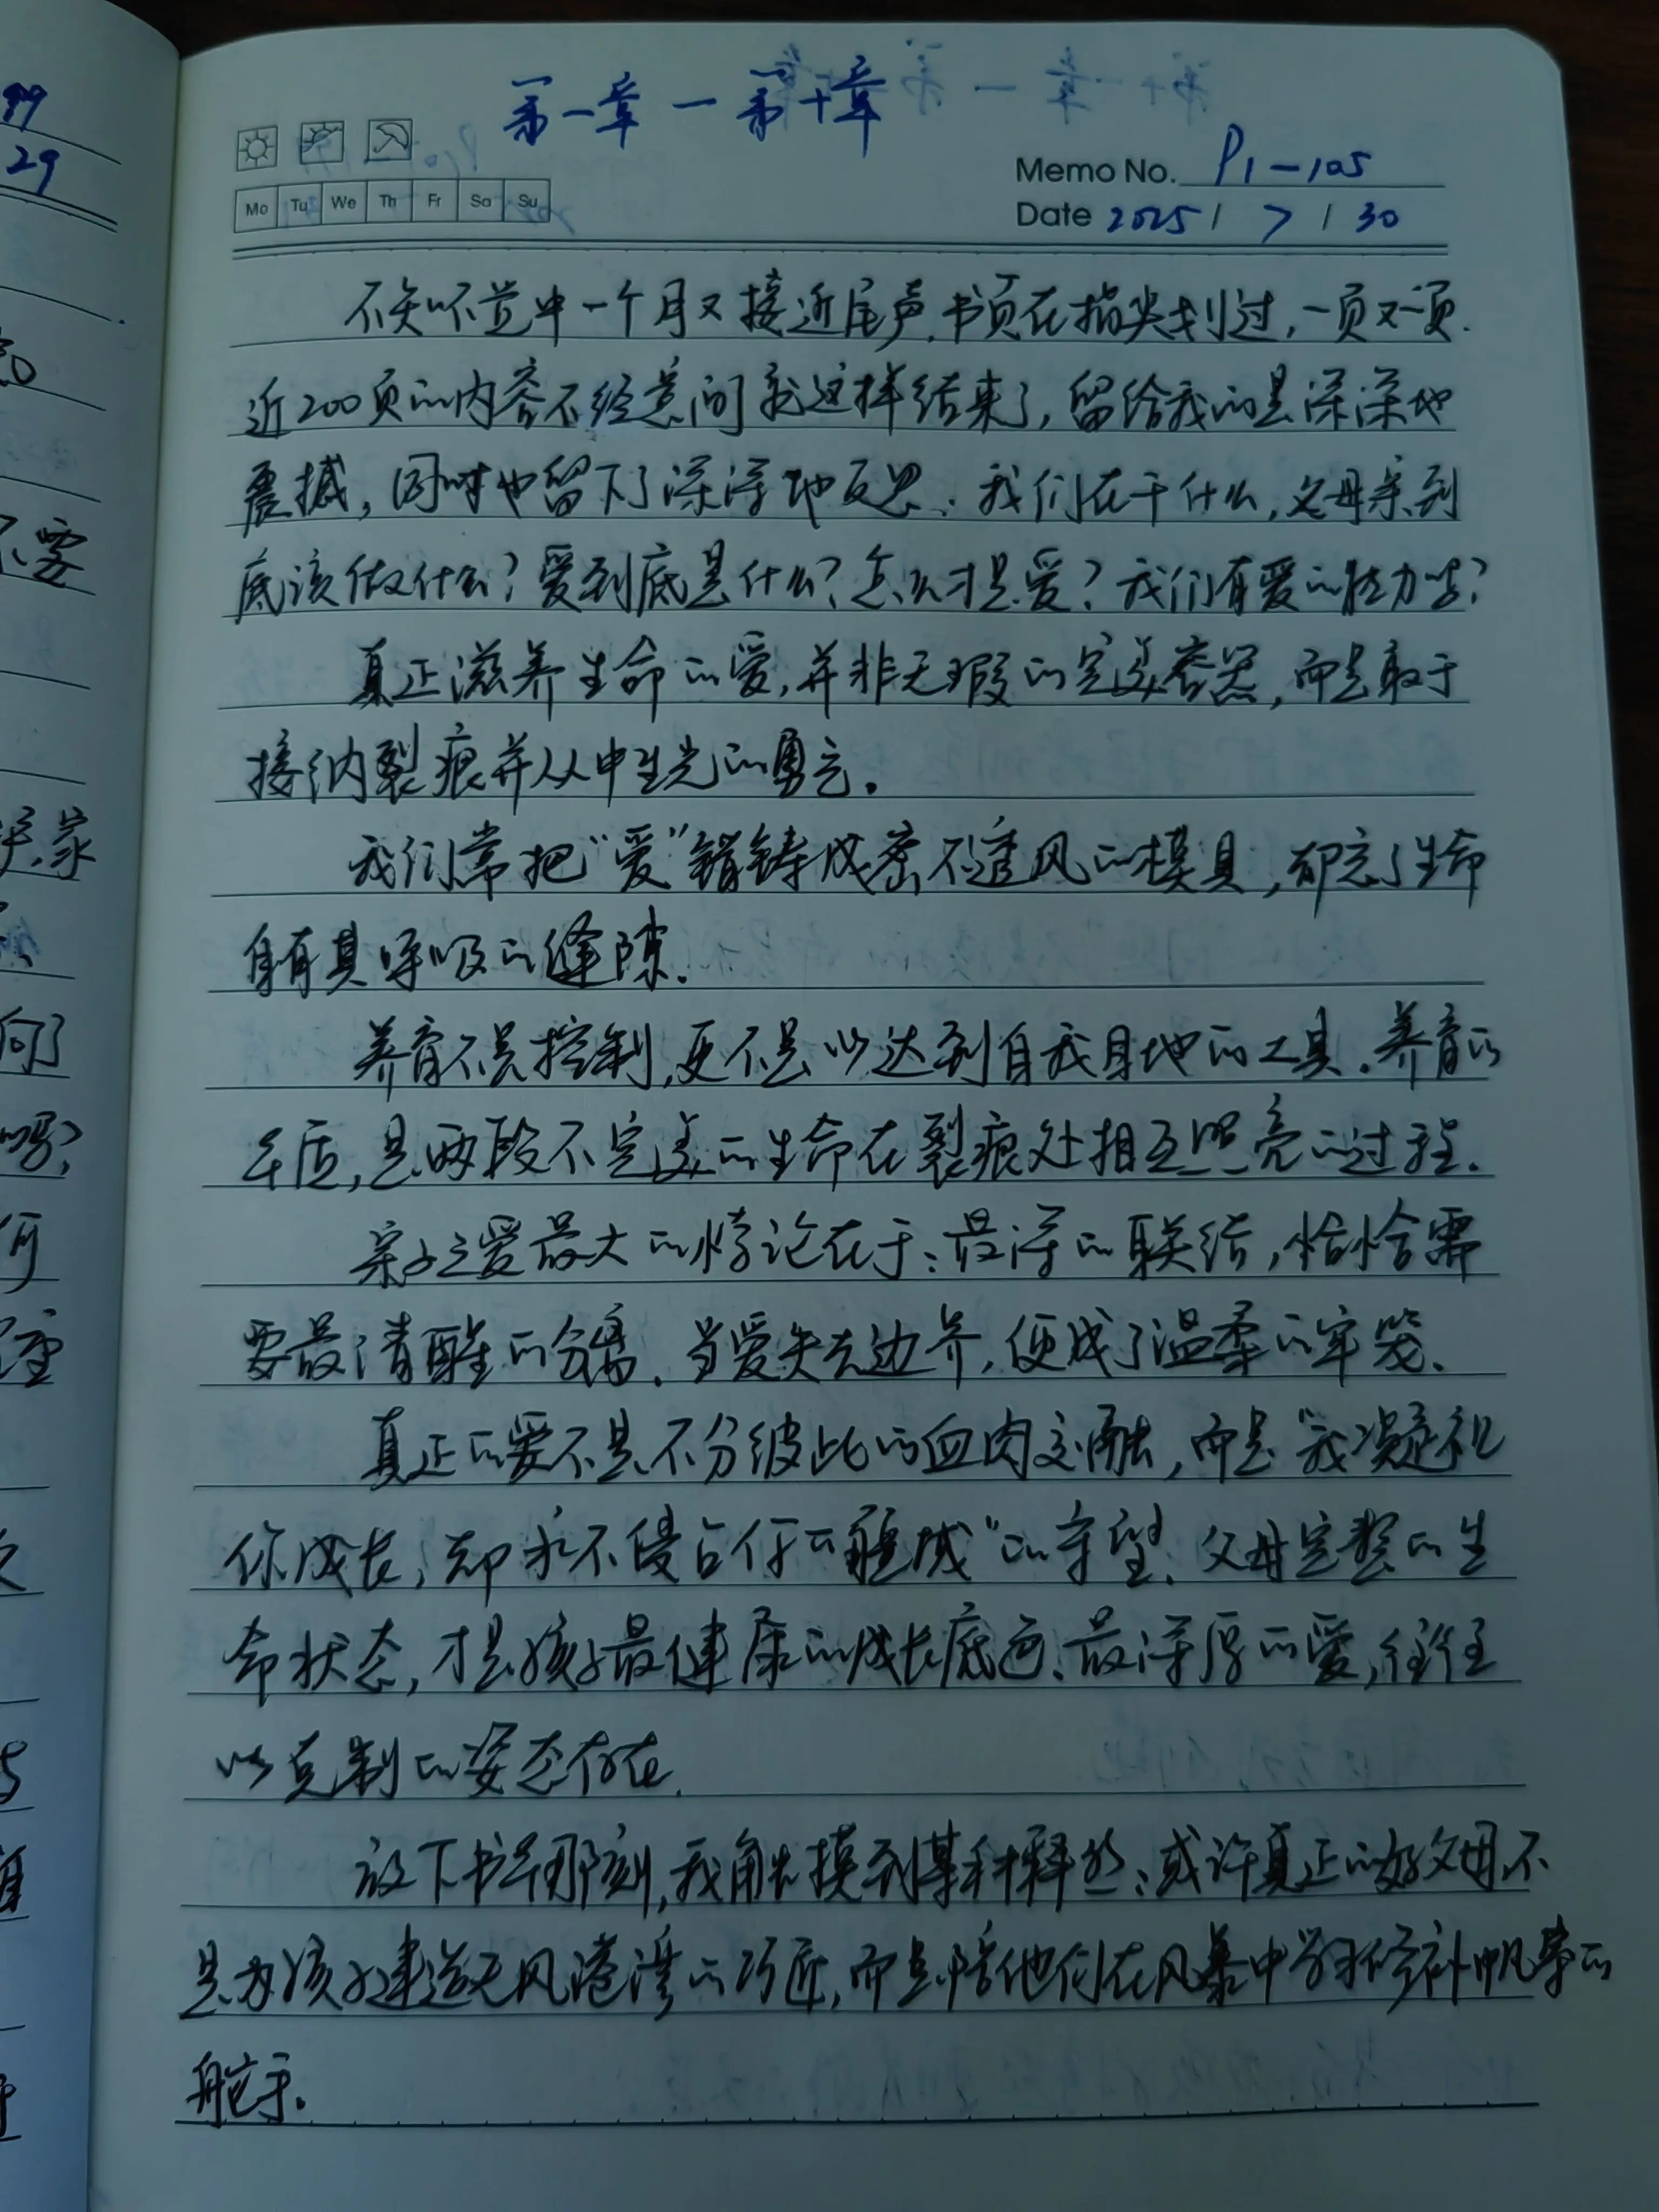 第一章—第十章
Memo No. P1—105
Mo Tu We Th Fr Sa Su
Date 2025 / 7 / 30
不知不觉中一个月又接近尾声,书页在指尖划过,一页又一页.
近200页的内容不经意间就这样结束了,留给我的是深深地
震撼,同时也留下了深深地反思.我们在干什么,父母亲到
底该做什么?爱到底是什么?怎么才是爱?我们有爱的能力吗?
真正滋养生命的爱,并非无瑕的完美容器,而是敢于
接纳裂痕并从中生光的勇气。
我们常把“爱”错铸成密不透风的模具,却忘了生命
自有其呼吸的缝隙.
养育不是控制,更不是以达到自我目地的工具.养育的
本质,是两段不完美的生命在裂痕处相互照亮的过程.
亲子之爱最大的悖论在于:最深的联结,恰恰需
要最清醒的分离.当爱失去边界,便成了温柔的牢笼.
真正的爱不是不分彼此的血肉交融,而是“我凝视
你成长,却永不侵占你的疆域”的守望.父母完整的生
命状态,才是孩子最健康的成长底色.最深厚的爱,往往
以克制的姿态存在.
放下书的那刻,我触摸到某种释然:或许真正的好父母,不
是为孩子建造无风港湾的巧匠,而是陪他们在风暴中学习修补帆的
舵手.
99
29
不要
家
向了
吗?
何